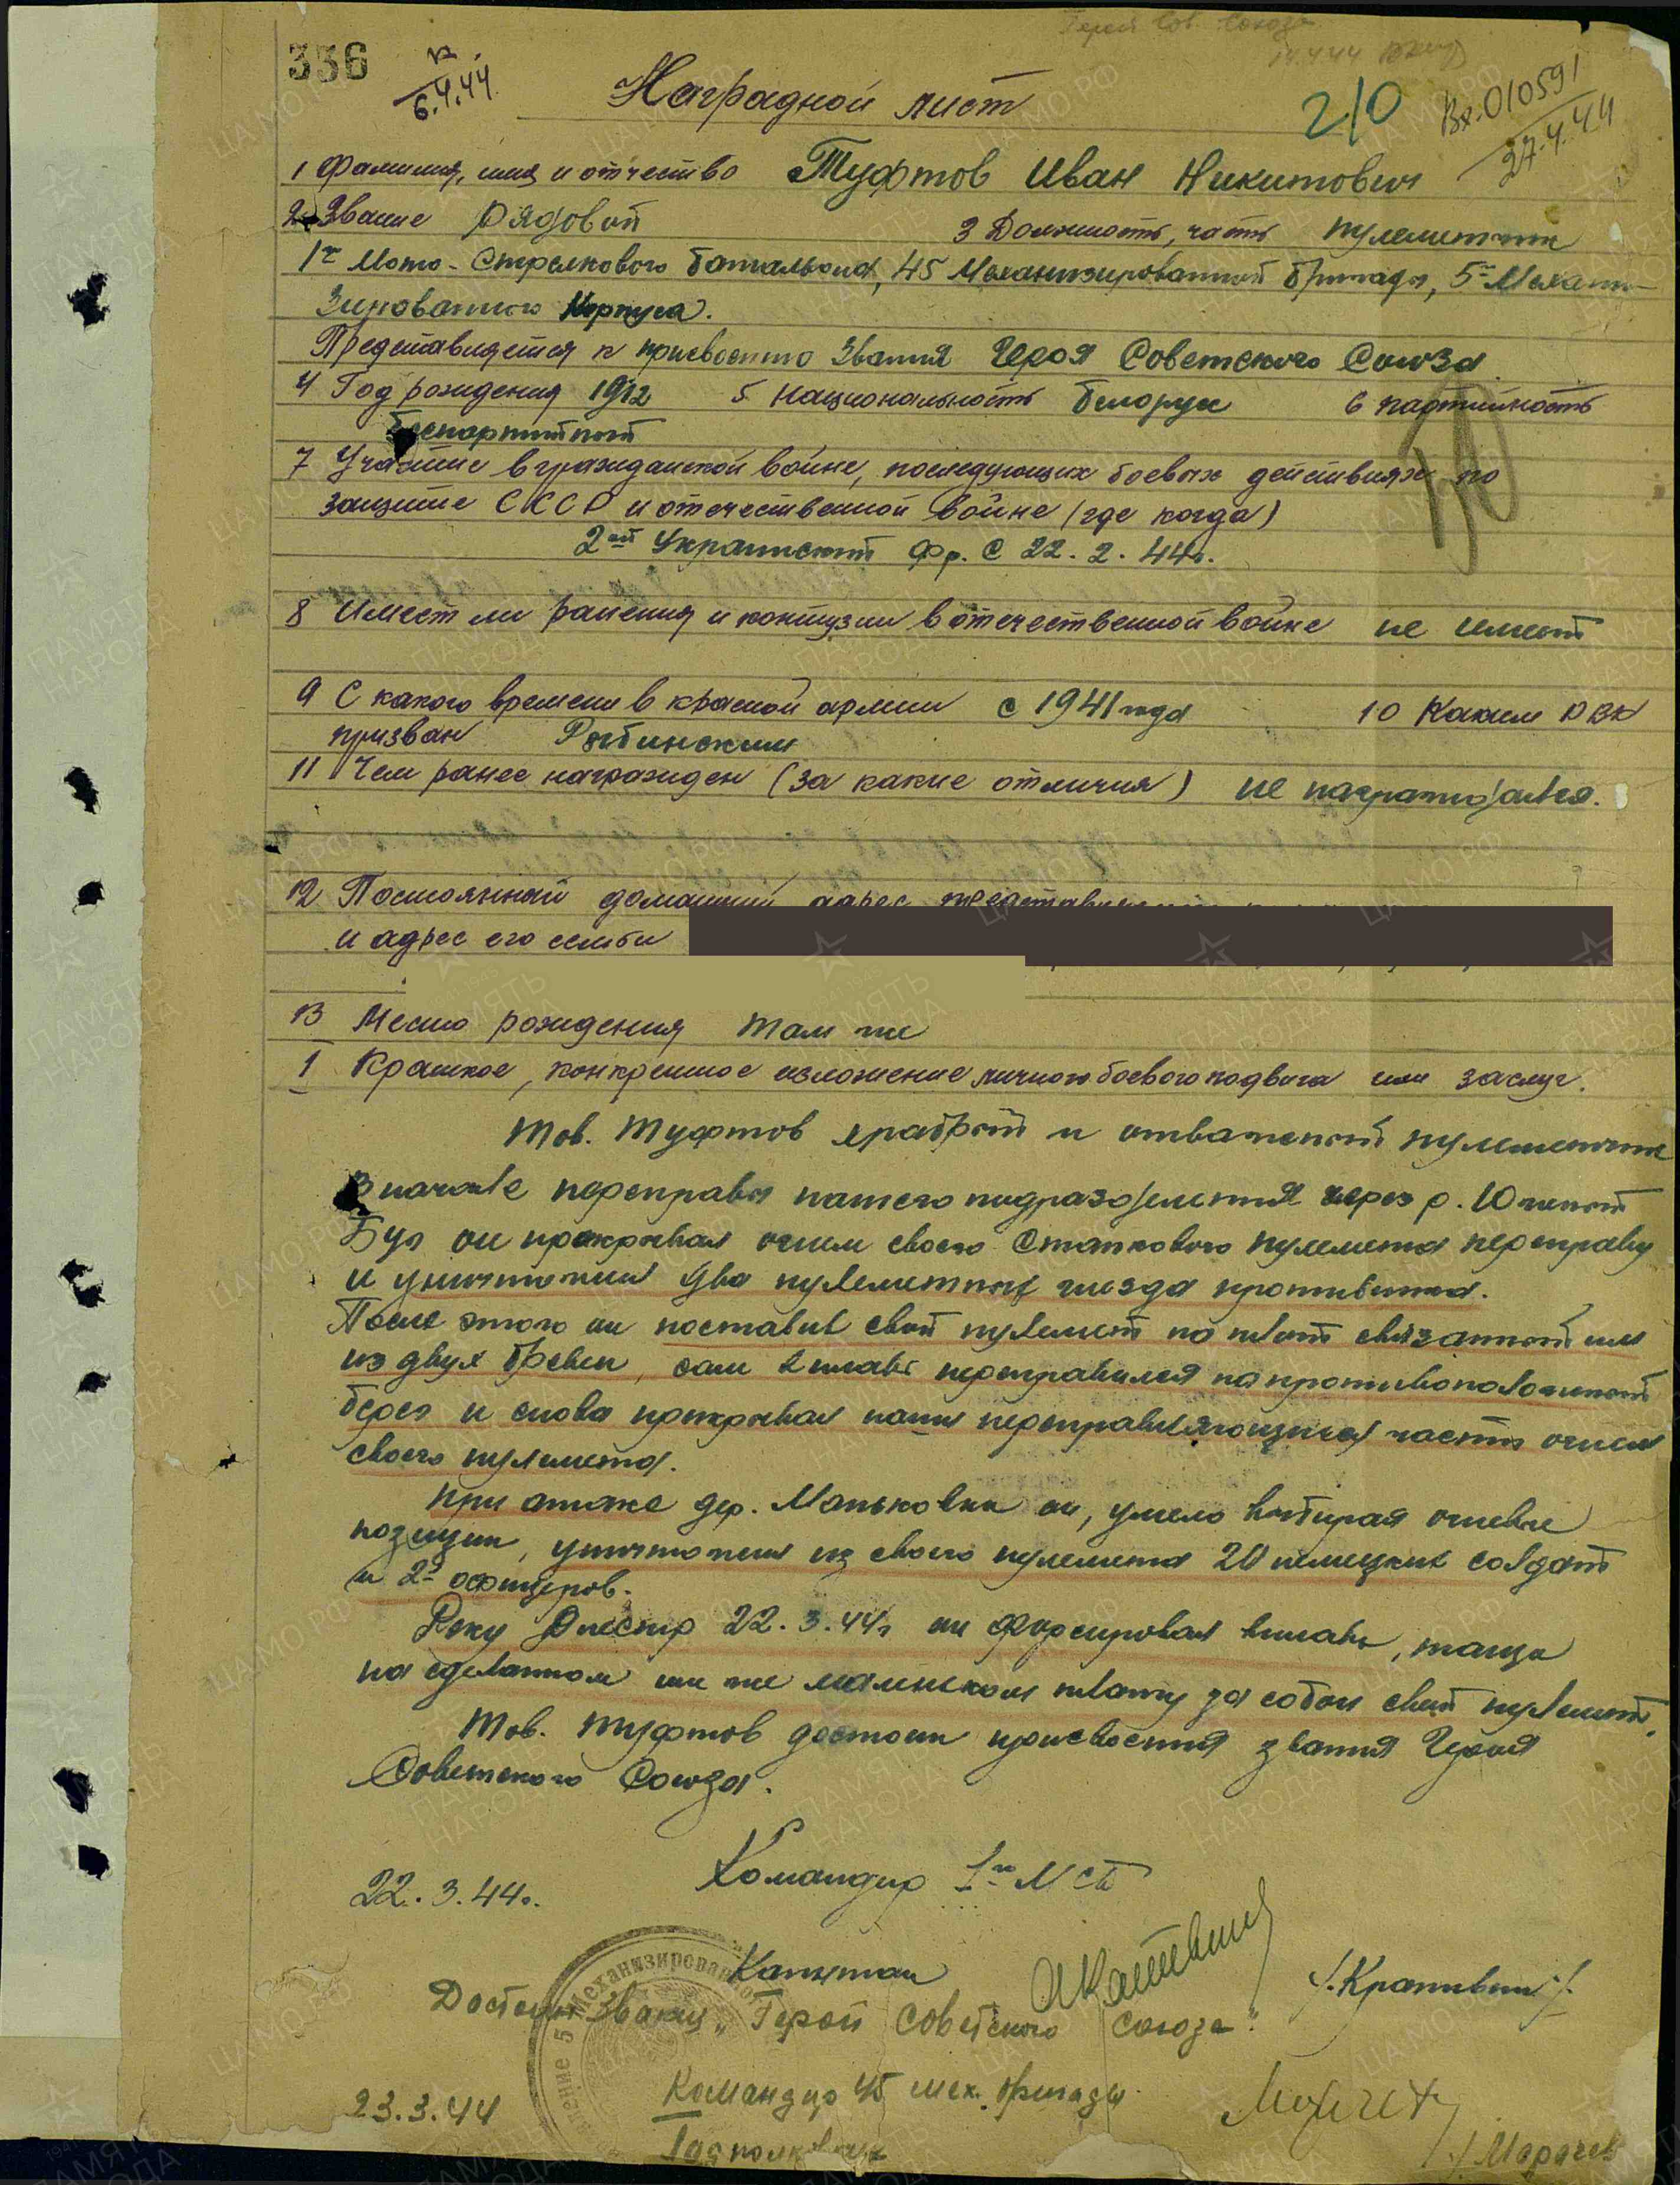 Герой Сов. Союза
14.4.44
336
6.4.44
Наградной лист
210
Вх.010591
27.4.44
1 Фамилия, имя и отчество Туфтов Иван Никитович
2 Звание Рядовой 3 Должность, часть пулеметчик
1го Мото-Стрелкового батальона, 45 Механизированной бригады, 5го Механи-
зированного Корпуса.
Представляется к присвоению Звания Героя Советского Союза.
4 Год рождения 1912 5 Национальность Белорус 6 партийность
беспартийный
7 Участие в гражданской войне, последующих боевых действиях по
защите СССР и отечественной войне (где когда)
2ой Украинский Фр. с 22.2.44г.
8 Имеет ли ранения и контузии в отечественной войне не имеет
9 С какого времени в красной армии с 1941 года 10 Каким РВК
призван Рыбинским
11 Чем ранее награжден (за какие отличия) не награждался.
12 Постоянный домашний адрес
и адрес его семьи
13 Место рождения там же
1 Краткое, конкретное изложение личного боевого подвига или заслуг.
Тов. Туфтов храбрый и отважный пулеметчик
В начале переправы нашего подразделения через р. Южный
Буг он прикрывал огнем своего станкового пулемета переправу
и уничтожил два пулеметных гнезда противника.
После этого он поставив свой пулемет на плот связанный им
из двух бревен, сам вплавь переправился на противоположный
берег и снова прикрывал наши переправляющиеся части огнем
своего пулемета.
При атаке дер. Маньковки он, умело выбирая огневые
позиции, уничтожил из своего пулемета 20 немецких солдат
и 2х офицеров.
Реку Днестр 22.3.44г он форсировал вплавь, таща
на сделанном им же маленьком плоту за собой свой пулемет.
Тов. Туфтов достоин присвоения звания Героя
Советского Союза.
22.3.44г. Командир 1го МСБ
Капитан /Крапивин/.
Достоин Звания „Герой Советского Союза".
23.3.44 Командир 45 мех. бригады
Подполковник